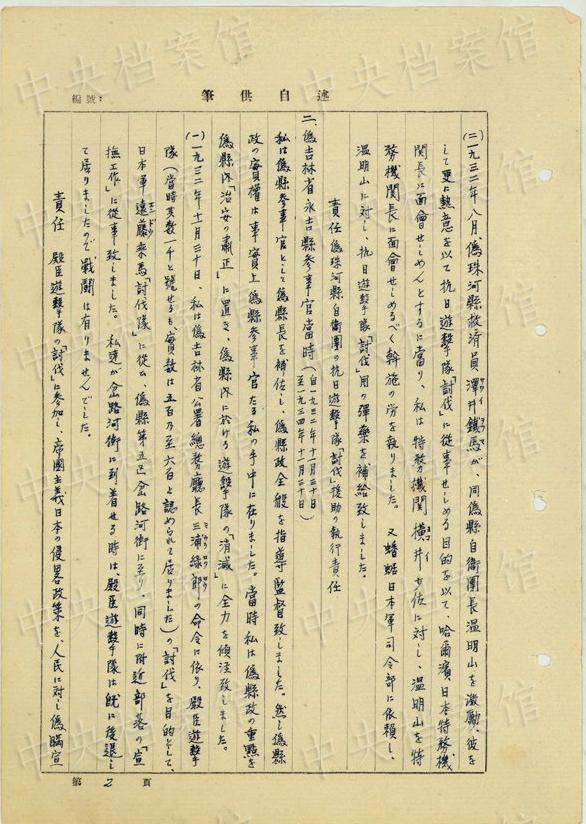 編號：
述自供筆
(二)一九三二年八月偽珠河縣救済員澤井鐵馬が、同偽縣自衛團長温明山を激勵、彼を
して更に熱意を以て抗日遊擊隊「討伐」に從事せしめる目的を以て、哈爾濱日本特務機
関長に面會せしめんとするに當り、私は特務機関橫井少佐に対し、温明山を特
務機関長に面會せしめるべく幹施の労を執りました。又日本軍司令部に依頼し、
温明山に対し、抗日遊擊隊「討伐」用の彈藥を補給致しました。
責任 偽珠河縣自衛團の抗日遊擊隊「討伐」援助の執行責任
二、偽吉林省永吉縣參事官當時（自一九三二年十一月三十日
至一九三四年十二月三十日）
私は偽縣參事官として偽縣長を補佐し、偽縣政全般を指導監督致しました。然し偽縣
政の實權は事實上偽縣參事官たる私の手中に在りました。當時私は偽縣政の重點を
偽縣内「治安の肅正」に置き、偽縣内に於ける遊擊隊の「消滅」に全力を傾注致しました。
(一)一九三二年十一月三十日、私は偽吉林省公署總務廳長三浦緑郎の命令に依り、殿臣遊擊
隊（當時其数一千と號せるも實数は五百乃至六百と認められて居りました）の「討伐」を目的として、
日本軍遠藤乘馬「討伐隊」に從い、偽縣第五区岔路河街に至り、同時に附近部落の「宣
撫工作」に從事致しました。私達が岔路河街に到着せる時は、殿臣遊擊隊は既に後退し
て居りましたので戰鬪は有りませんでした。
責任 殿臣遊擊隊の「討伐」に參加し、帝國主義日本の侵畧政策を、人民に対し偽瞞宣
第 2 頁
中央档案馆
中央档案馆
中央档案馆
中央档案馆